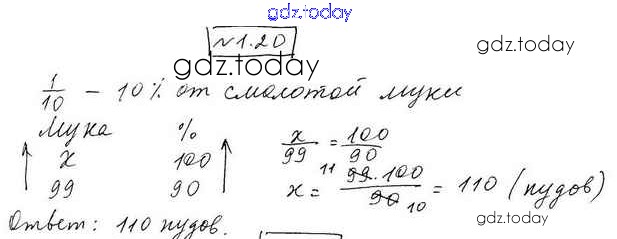 gdz.today
№1.20
gdz.today
gdz.today
1/10 – 10% от смолотой муки
Мука %
x 100
99 90
x/99 = 100/90
x = 99·100/90 = 110 (пудов)
11 10
Ответ: 110 пудов.
gdz.today